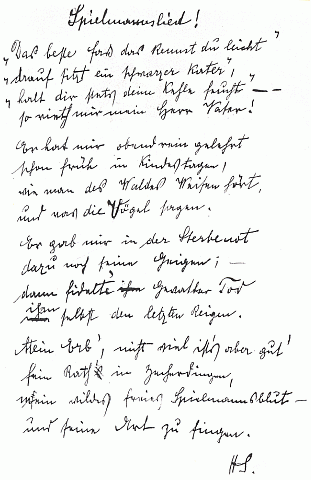 Spielmannslied!
"Das beste Fass das kennst du leicht"
"drauf sitzt ein schwarzer Kater",
"halt dir stets deine Kehle feucht" — —
so rieth mir mein Herr Vater!
Er hat mir obendrein gelehrt
schon früh in Kindestagen,
wie man des Waldes Weisen hört,
und was die Vögel sagen.
Er gab mir in der Sterbenot
dazu noch seine Geigen; —
dann fidelte Gevatter Tod
ihm selbst den letzten Reigen.
Mein Erb', nicht viel ist's aber gut!
sein Rath in Zecherdingen,
sein wildes freies Spielmannsblut —
und seine Art zu singen.
HS.